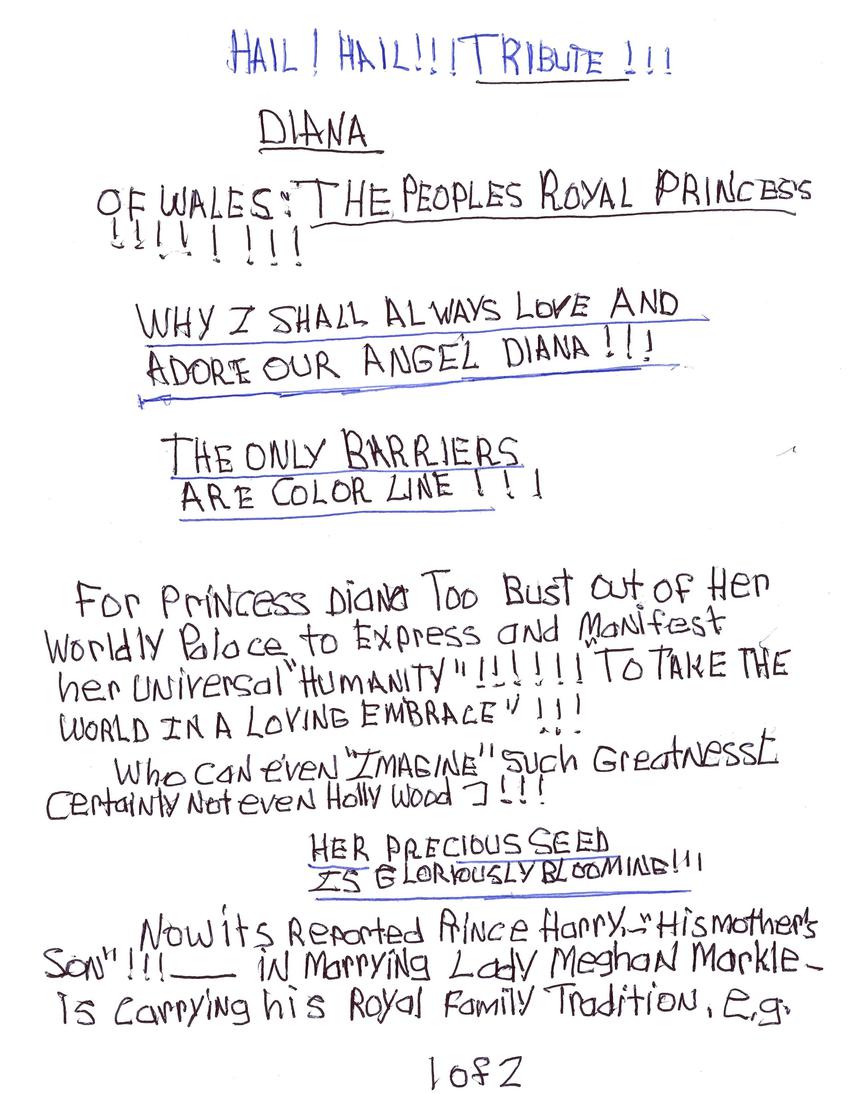 HAIL! HAIL!!! TRIBUTE!!!
DIANA
OF WALES: THE PEOPLES ROYAL PRINCESS
!!!!!!!!
WHY I SHALL ALWAYS LOVE AND
ADORE OUR ANGEL DIANA!!!
THE ONLY BARRIERS
ARE COLOR LINE!!!
For Princess Diana Too Bust out of Her
Worldly Palace to Express and Manifest
her universal "HUMANITY"!!!!!! "TO TAKE THE
WORLD IN A LOVING EMBRACE"!!!
Who can even "IMAGINE" such Greatnesst
Certainly Not even Holly Wood?!!!
HER PRECIOUS SEED
IS GLORIOUSLY BLOOMING!!!
Now its Reported Prince Harry,-"His mother's
Son"!!!— in Marrying Lady Meghan Markle-
is carrying his Royal Family Tradition, e.g.
1 of 2